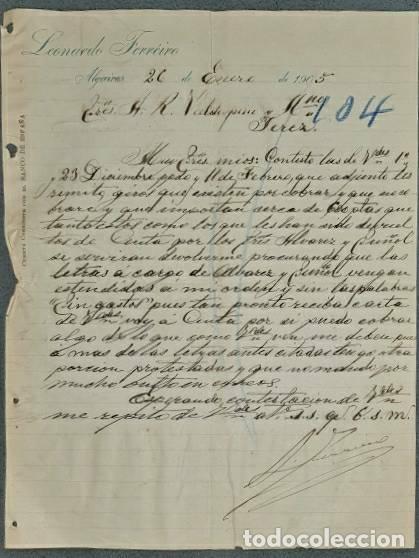 Leonardo Ferreiro
Algeciras 26 de Enero de 1905
Sres. A. R. Valdespino y Hno
104
Jerez.
CUENTA CORRIENTE CON EL BANCO DE ESPAÑA
Muy Sres mios: Contesto las de Vdes
23 Diciembre ppdo y 11 de Febrero, que adjunto les
remito, giros que existen por cobrar y que no co
brare y que importan cerca de ptas que
tanto estos como los que les han sido devuel
tos de Ceuta por los Sres Alvarez y Cuñol
se serviran devolverme procurando que las
letras a cargo de Alvarez y Cuñol vengan
estendidas a mi orden y sin las palabras
"Sin gastos" pues tan pronto reciba carta
de Vdes voy a Ceuta por si puedo cobrar
algo de lo que como Vdes ven, me deben pues
a mas de las letras antes citadas tengo otra
porcion protestadas y que no mando por
mucho bulto en
Esperando contestacion de Vdes
me repito de Vdes a. s. s. q. b. s. m.
L. Ferreiro
todocoleccion.net